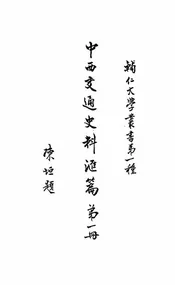 輔仁大學叢書第一種
中西交通史料滙篇第一冊
陳垣題